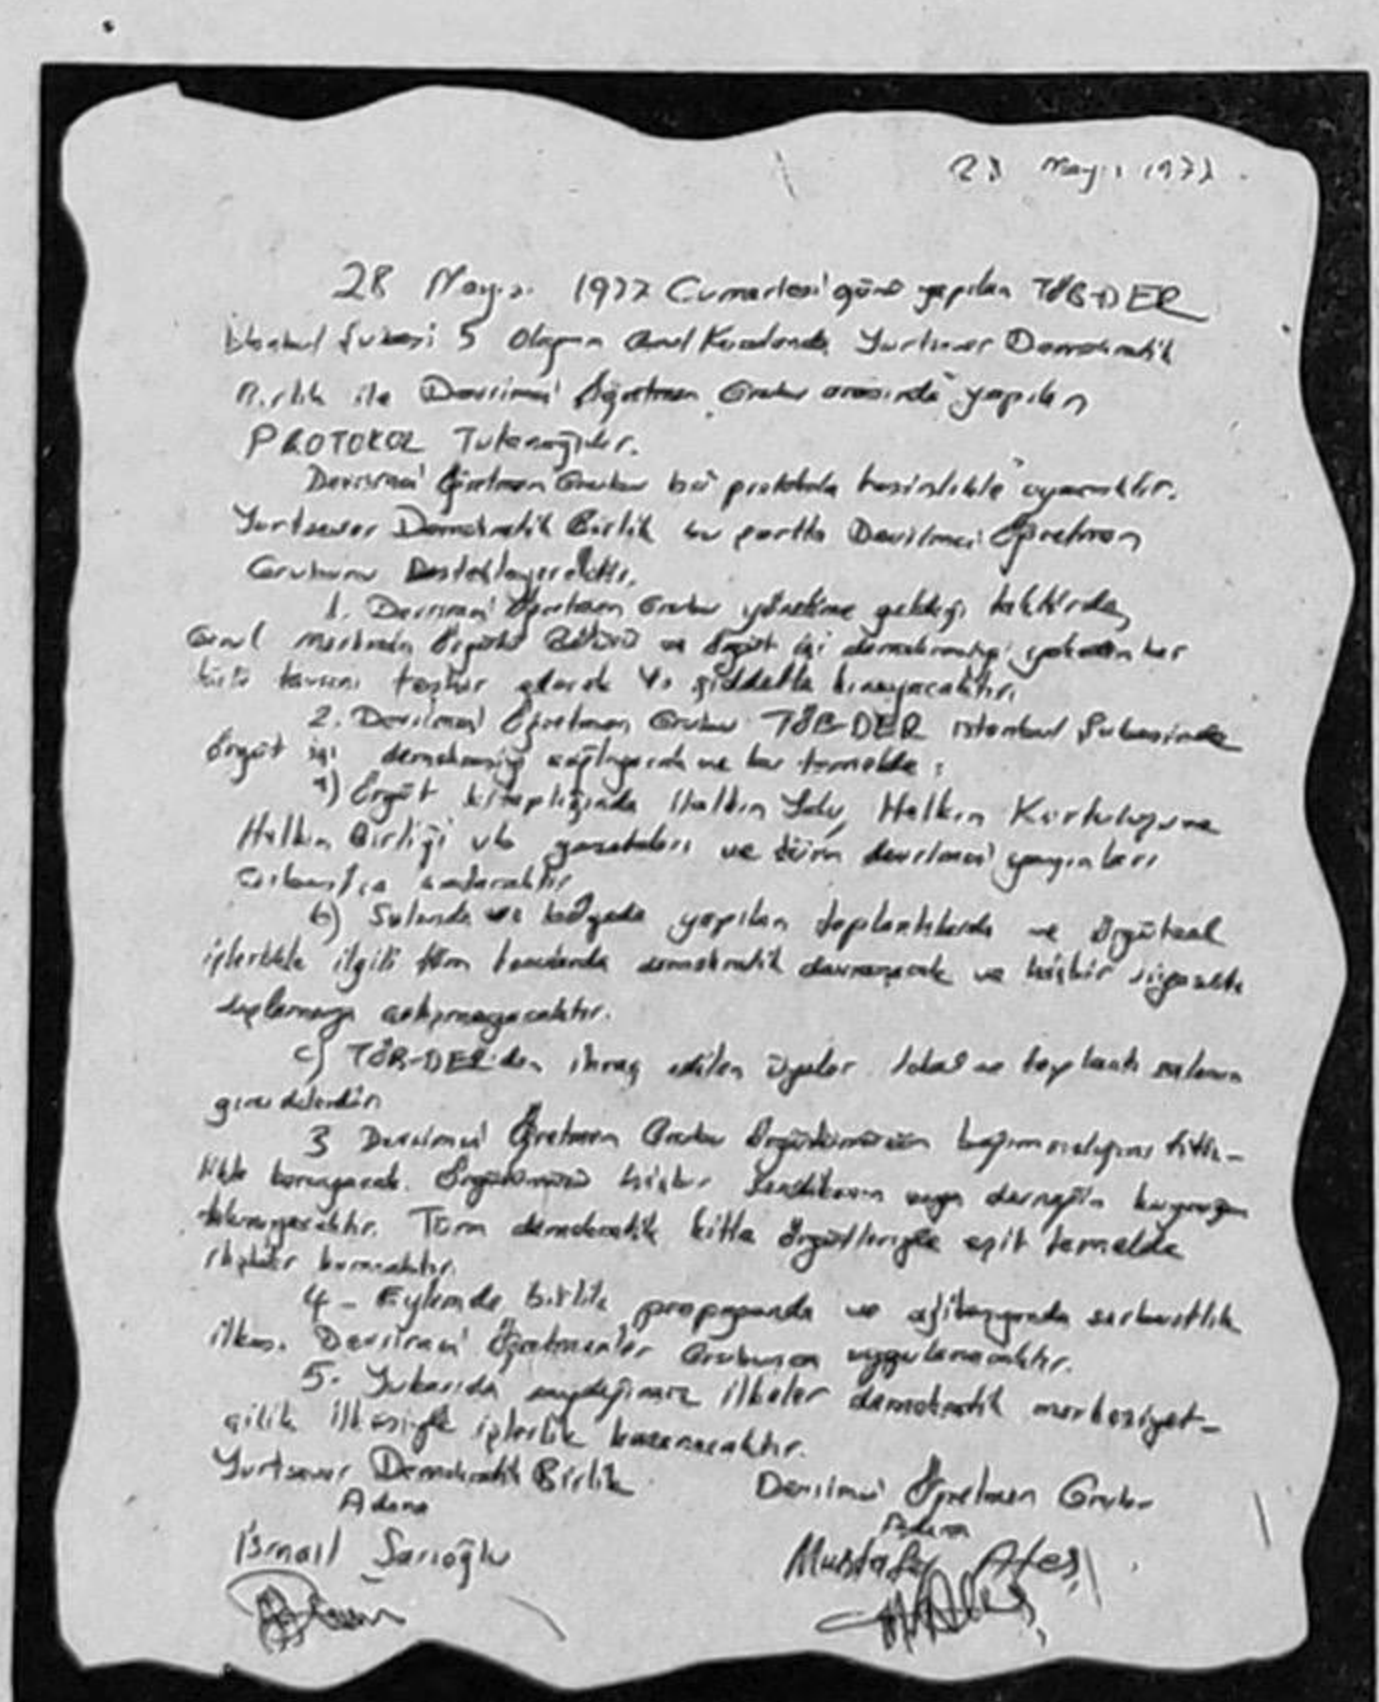 28 Mayıs 1977
28 Mayıs 1977 Cumartesi günü yapılan TÖB-DER
İstanbul Şubesi 5 Olağan Genel Kurulunda Yurtsever Demokratik
Birlik ile Devrimci Öğretmen Grubu arasında yapılan
PROTOKOL Tutanağıdır.
Devrimci Öğretmen Grubu bu protokola kesinlikle uyacaktır.
Yurtsever Demokratik Birlik bu şartla Devrimci Öğretmen
Grubunu Destekleyecektir.
1. Devrimci Öğretmen Grubu yönetime geldiği taktirde,
Genel Merkezin örgütü bölücü ve örgüt içi demokrasiyi yokeden her
türlü tavrını teşhir edecek ve şiddetle kınayacaktır.
2. Devrimci Öğretmen Grubu TÖB-DER İstanbul Şubesinde
örgüt içi demokrasiyi sağlayacak ve bu temelde :
a) Örgüt kitaplığında Halkın Yolu, Halkın Kurtuluşu ve
Halkın Birliği vb gazeteleri ve tüm devrimci yayınları
serbestçe satacaktır
b) Salonda ve bölgede yapılan toplantılarda ve örgütsel
işlerle ilgili tüm konularda demokratik davranacak ve hiçbir siyasette
suçlamaya çalışmayacaktır.
c) TÖB-DER'den ihraç edilen üyeler lokal ve toplantı salonuna
3 Devrimci Öğretmen Grubu örgütümüzün bağımsızlığını titiz-
likle koruyacak. Örgütümüzü hiçbir sendikanın veya derneğin kuyruğuna
takmayacaktır. Tüm demokratik kitle örgütleriyle eşit temelde
ilişkiler kuracaktır.
4 - Eylemde birlik propaganda ve ajitasyonda serbestlik
ilkesi. Devrimci Öğretmenler Grubunca uygulanacaktır.
5. Yukarıda saydığımız ilkeler demokratik merkeziyet-
çilik ilkesiyle işlerlik kazanacaktır.
Yurtsever Demokratik Birlik Devrimci Öğretmen Grubu
Adına Adına
İsmail Sarıoğlu Mustafa Ateş